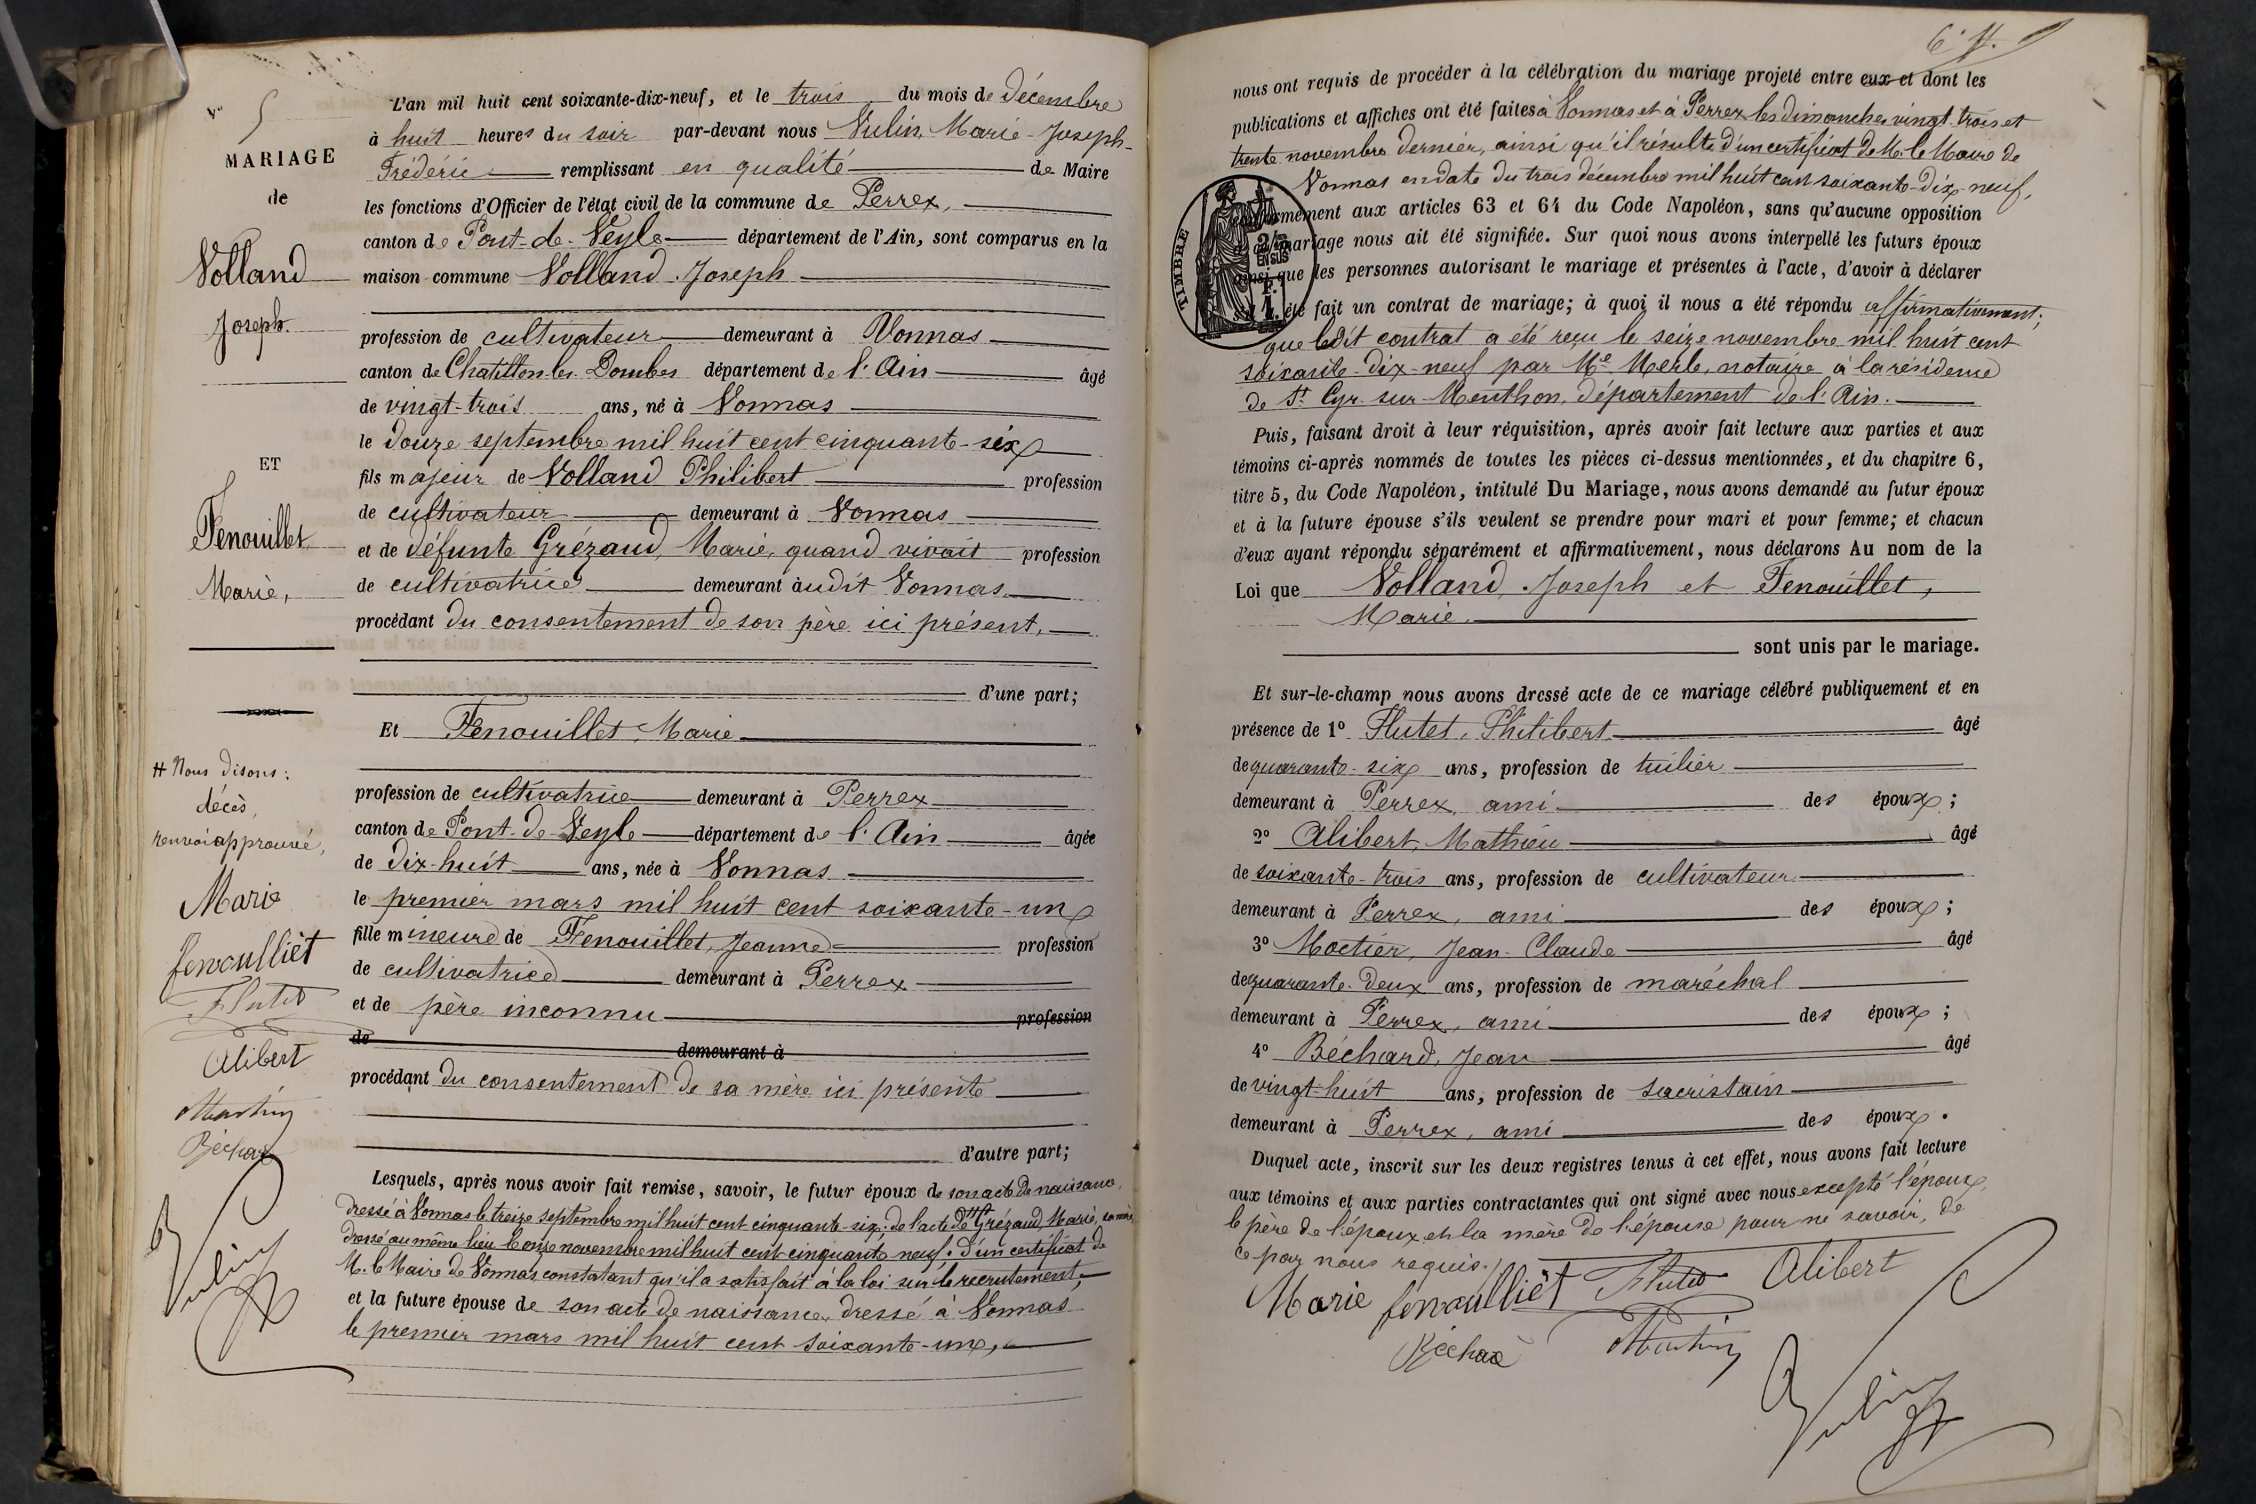 V.e 5
MARIAGE
de
Volland
Joseph.
ET
Fenouillet
Marie,
# Nous disons :
décès,
renvoi approuvé,
Marie
fenoulliet
Flutet
Alibert
Béchard
Vulin
L'an mil huit cent soixante-dix-neuf, et le trois du mois de décembre
à huit heures du soir par-devant nous Vulin, Marie-Joseph-
Frédéric remplissant en qualité de Maire
les fonctions d'Officier de l'état civil de la commune de Perrex,
canton de Pont-de-Veyle département de l'Ain, sont comparus en la
maison commune Volland Joseph
profession de cultivateur demeurant à Vonnas
canton de Chatillon-les-Dombes département de l'Ain âgé
de vingt-trois ans, né à Vonnas
le douze septembre mil huit cent cinquante-six
fils majeur de Volland Philibert profession
de cultivateur demeurant à Vonnas
et de défunte Grézaud, Marie, quand vivait profession
de cultivatrice demeurant audit Vonnas
procédant du consentement de son père ici présent,
d'une part;
Et Fenouillet Marie
profession de cultivatrice demeurant à Perrex
canton de Pont-de-Veyle département de l'Ain âgée
de dix-huit ans, née à Vonnas
le premier mars mil huit cent soixante-un
fille mineure de Fenouillet, Jeanne profession
de cultivatrice demeurant à Perrex
et de père inconnu profession
de demeurant à
procédant du consentement de sa mère ici présente
d'autre part;
Lesquels, après nous avoir fait remise, savoir, le futur époux de son acte de naissance,
dressé à Vonnas le treize septembre mil huit cent cinquante-six; de l'acte de # Grézaud, Marie, sa mère
dressé au même lieu le onze novembre mil huit cent cinquante neuf; d'un certificat de
M. le Maire de Vonnas constatant qu'il a satisfait à la loi sur le recrutement;
et la future épouse de son acte de naissance, dressé à Vonnas
le premier mars mil huit cent soixante-un,
6. f.
nous ont requis de procéder à la célébration du mariage projeté entre eux et dont les
publications et affiches ont été faites à Vonnas et à Perrex les dimanches vingt-trois et
trente novembre dernier, ainsi qu'il résulte d'un certificat de M. le Maire de
Vonnas en date du trois décembre mil huit cent soixante-dix-neuf,
conformément aux articles 63 et 64 du Code Napoléon, sans qu'aucune opposition
au mariage nous ait été signifiée. Sur quoi nous avons interpellé les futurs époux
ainsi que les personnes autorisant le mariage et présentes à l'acte, d'avoir à déclarer
s'il a été fait un contrat de mariage; à quoi il nous a été répondu affirmativement;
que ledit contrat a été reçu le seize novembre mil huit cent
soixante-dix-neuf par Me Merle, notaire à la résidence
de St Cyr-sur-Menthon, département de l'Ain.
TIMBRE
2/10
EN SUS
Puis, faisant droit à leur réquisition, après avoir fait lecture aux parties et aux
témoins ci-après nommés de toutes les pièces ci-dessus mentionnées, et du chapitre 6,
titre 5, du Code Napoléon, intitulé Du Mariage, nous avons demandé au futur époux
et à la future épouse s'ils veulent se prendre pour mari et pour femme; et chacun
d'eux ayant répondu séparément et affirmativement, nous déclarons Au nom de la
Loi que Volland, Joseph et Fenouillet,
Marie
sont unis par le mariage.
Et sur-le-champ nous avons dressé acte de ce mariage célébré publiquement et en
présence de 1º Flutet, Philibert âgé
de quarante-six ans, profession de tuilier
demeurant à Perrex, ami des époux;
2º Alibert, Mathieu âgé
de soixante-trois ans, profession de cultivateur
demeurant à Perrex, ami des époux;
3º Moctier, Jean-Claude âgé
de quarante-deux ans, profession de maréchal
demeurant à Perrex, ami des époux;
4º Béchard, Jean âgé
de vingt-huit ans, profession de sacristain
demeurant à Perrex, ami des époux.
Duquel acte, inscrit sur les deux registres tenus à cet effet, nous avons fait lecture
aux témoins et aux parties contractantes qui ont signé avec nous excepté l'époux,
le père de l'époux et la mère de l'épouse pour ne savoir, de
ce par nous requis.
Marie fenoulliet Flutet Alibert
Béchard
Vulin